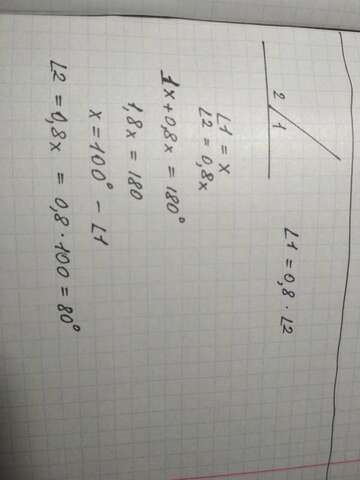 2 1
∠1 = 0,8 · ∠2
∠1 = x
∠2 = 0,8x
1x + 0,8x = 180°
1,8x = 180
x = 100° – ∠1
∠2 = 0,8x = 0,8 · 100 = 80°